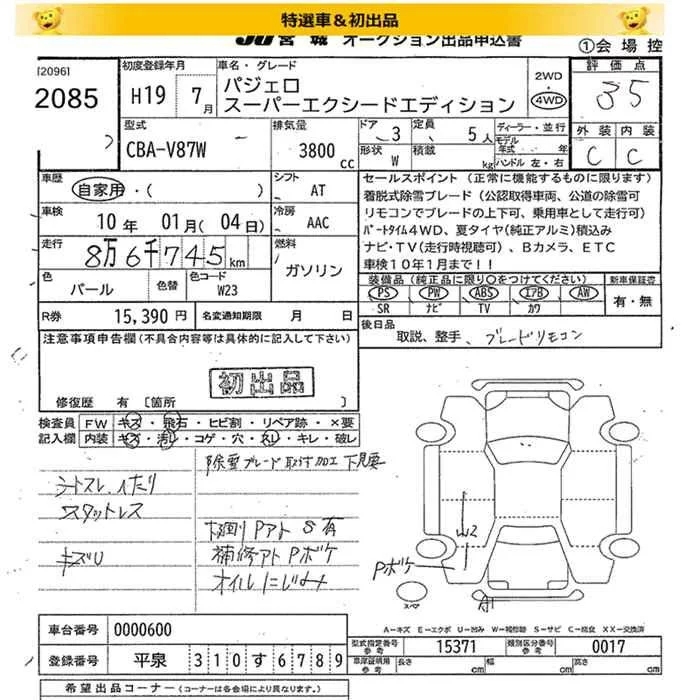 特選車＆初出品
JU宮城 オークション出品申込書 ①会場控
[20961
2085
初度登録年月 H19年 7月
車名・グレード
パジェロ
スーパーエクシードエディション
2WD・4WD
評価点 3.5
型式 CBA-V87W
排気量 3800cc
ドア 3 定員 5人
形状 W 積載 kg
ディーラー・並行
モデル年式 年
ハンドル 左・右
外装 C 内装 C
車歴 自家用・( )
シフト AT
車検 10年 01月(04日)
冷房 AAC
走行 8万6千745km
燃料 ガソリン
色 パール 色替
色コード W23
R券 15,390円 名変通知期限 月 日
セールスポイント (正常に機能するものに限ります)
着脱式除雪ブレード(公認取得車両、公道の除雪可
リモコンでブレードの上下可、乗用車として走行可)
パートタイム4WD、夏タイヤ(純正アルミ)積込み
ナビ・TV(走行時視聴可)、Bカメラ、ETC
車検10年1月まで!!
装備品(純正品に限り○をつけてください)
PS PW ABS エアB AW
SR ナビ TV カワ
新車保証書
有・無
後日品 取説、整手、ブレードリモコン
注意事項申告欄(不具合内容等は具体的に記入して下さい)
初出品
修復歴 有 [箇所
検査員記入欄
FW キズ・飛石・ヒビ割・リペア跡・×要
内装 キズ・汚レ・コゲ・穴・スレ・キレ・破レ
除雪ブレード取付加工 下見要
シートスレ、イたり
スタットレス
下廻りPアトS有
キズU
補修アトPボケ
オイルにじみ
W2
Pボケ
スペア
A1
A―キズ E―エクボ U―凹み W―補修跡 S―サビ C―腐食 XX―交換済
車台番号 0000600
型式指定番号 参考 15371
類別区分番号 参考 0017
登録番号 平泉 310す6789
車庫証明用 参考 長さ cm 幅 cm 高さ cm
希望出品コーナー(コーナーは各会場により異なります。)